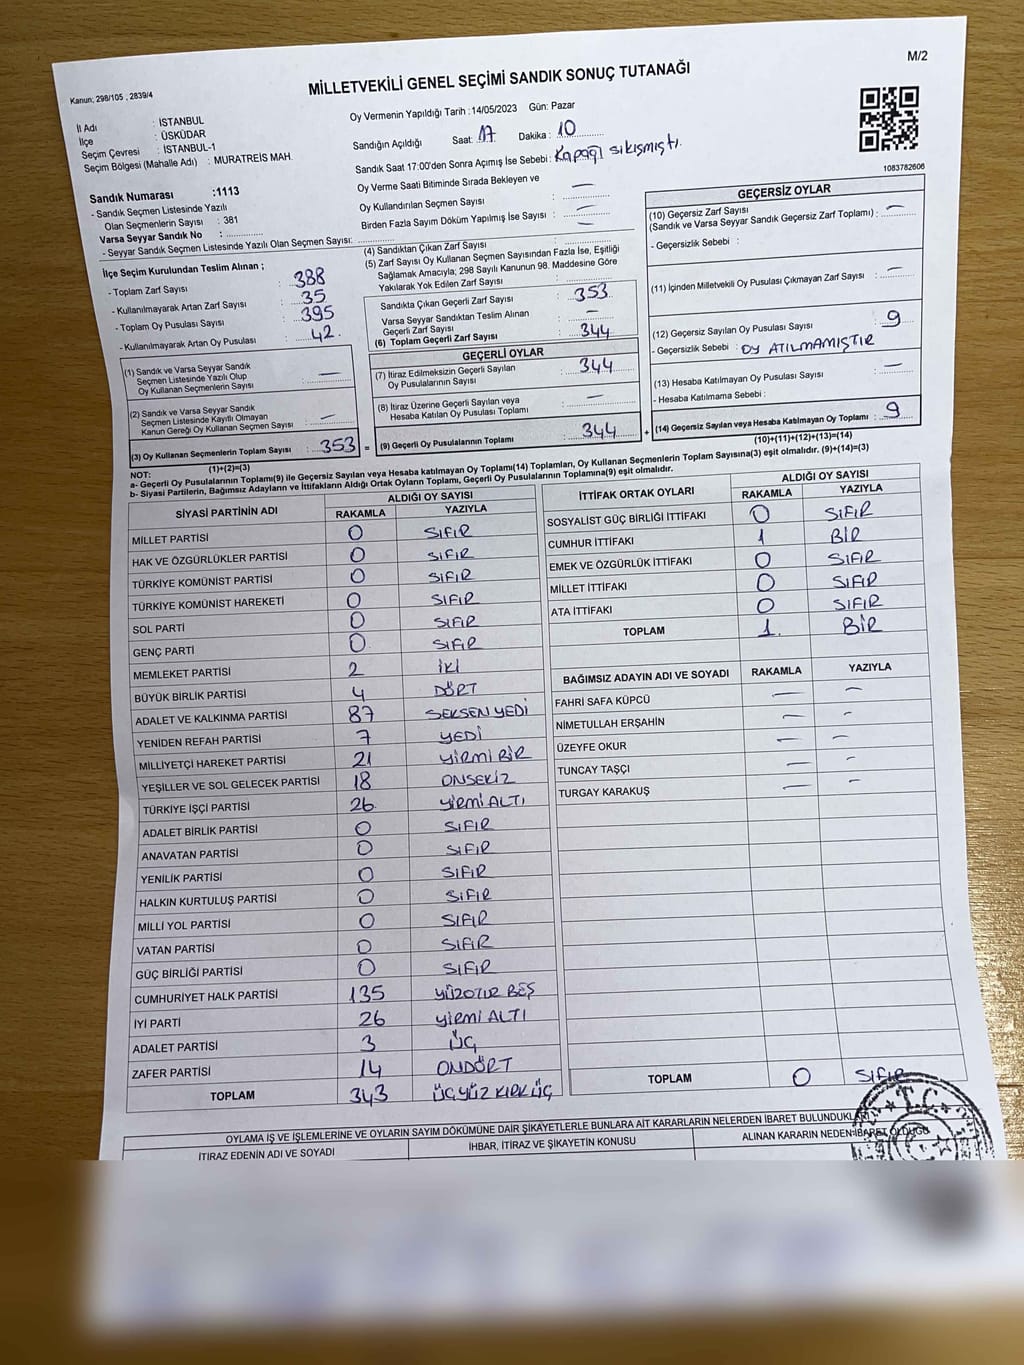 M/2
Kanun; 298/105 , 2839/4
MİLLETVEKİLİ GENEL SEÇİMİ SANDIK SONUÇ TUTANAĞI
İl Adı : İSTANBUL
İlçe : ÜSKÜDAR
Seçim Çevresi : İSTANBUL-1
Seçim Bölgesi (Mahalle Adı) : MURATREİS MAH.
Oy Vermenin Yapıldığı Tarih :14/05/2023 Gün: Pazar
Sandığın Açıldığı Saat: 17 Dakika : 10
Sandık Saat 17:00'den Sonra Açımış İse Sebebi: Kapağı sıkışmıştı.
1083782606
Sandık Numarası :1113
- Sandık Seçmen Listesinde Yazılı
Olan Seçmenlerin Sayısı : 381
Varsa Seyyar Sandık No :
- Seyyar Sandık Seçmen Listesinde Yazılı Olan Seçmen Sayısı:
Oy Verme Saati Bitiminde Sırada Bekleyen ve
Oy Kullandırılan Seçmen Sayısı : —
Birden Fazla Sayım Döküm Yapılmış İse Sayısı : —
İlçe Seçim Kurulundan Teslim Alınan ;
- Toplam Zarf Sayısı : 388
- Kullanılmayarak Artan Zarf Sayısı : 35
- Toplam Oy Pusulası Sayısı : 395
- Kullanılmayarak Artan Oy Pusulası : 42.
(1) Sandık ve Varsa Seyyar Sandık
Seçmen Listesinde Yazılı Olup
Oy Kullanan Seçmenlerin Sayısı : —
(2) Sandık ve Varsa Seyyar Sandık
Seçmen Listesinde Kayıtlı Olmayan
Kanun Gereği Oy Kullanan Seçmen Sayısı : —
(3) Oy Kullanan Seçmenlerin Toplam Sayısı : 353
(1)+(2)=(3)
(4) Sandıktan Çıkan Zarf Sayısı :
(5) Zarf Sayısı Oy Kullanan Seçmen Sayısından Fazla İse, Eşitliği
Sağlamak Amacıyla; 298 Sayılı Kanunun 98. Maddesine Göre
Yakılarak Yok Edilen Zarf Sayısı :
Sandıkta Çıkan Geçerli Zarf Sayısı : 353
Varsa Seyyar Sandıktan Teslim Alınan
Geçerli Zarf Sayısı : —
(6) Toplam Geçerli Zarf Sayısı : 344
GEÇERLİ OYLAR
(7) İtiraz Edilmeksizin Geçerli Sayılan
Oy Pusulalarının Sayısı : 344
(8) İtiraz Üzerine Geçerli Sayılan veya
Hesaba Katılan Oy Pusulası Toplamı : —
= (9) Geçerli Oy Pusulalarının Toplamı : 344 +
GEÇERSİZ OYLAR
(10) Geçersiz Zarf Sayısı
(Sandık ve Varsa Seyyar Sandık Geçersiz Zarf Toplamı) : —
- Geçersizlik Sebebi :
(11) İçinden Milletvekili Oy Pusulası Çıkmayan Zarf Sayısı : —
(12) Geçersiz Sayılan Oy Pusulası Sayısı : 9
- Geçersizlik Sebebi : OY ATILMAMIŞTIR
(13) Hesaba Katılmayan Oy Pusulası Sayısı : —
- Hesaba Katılmama Sebebi :
(14) Geçersiz Sayılan veya Hesaba Katılmayan Oy Toplamı : 9
(10)+(11)+(12)+(13)=(14)
NOT:
a- Geçerli Oy Pusulalarının Toplamı(9) ile Geçersiz Sayılan veya Hesaba katılmayan Oy Toplamı(14) Toplamları, Oy Kullanan Seçmenlerin Toplam Sayısına(3) eşit olmalıdır. (9)+(14)=(3)
b- Siyasi Partilerin, Bağımsız Adayların ve İttifakların Aldığı Ortak Oyların Toplamı, Geçerli Oy Pusulalarının Toplamına(9) eşit olmalıdır.
SİYASİ PARTİNİN ADI ALDIĞI OY SAYISI
RAKAMLA YAZIYLA
MİLLET PARTİSİ 0 SIFIR
HAK VE ÖZGÜRLÜKLER PARTİSİ 0 SIFIR
TÜRKİYE KOMÜNİST PARTİSİ 0 SIFIR
TÜRKİYE KOMÜNİST HAREKETİ 0 SIFIR
SOL PARTİ 0 SIFIR
GENÇ PARTİ 0 SIFIR
MEMLEKET PARTİSİ 2 İKİ
BÜYÜK BİRLİK PARTİSİ 4 DÖRT
ADALET VE KALKINMA PARTİSİ 87 SEKSEN YEDİ
YENİDEN REFAH PARTİSİ 7 YEDİ
MİLLİYETÇİ HAREKET PARTİSİ 21 YİRMİ BİR
YEŞİLLER VE SOL GELECEK PARTİSİ 18 ONSEKİZ
TÜRKİYE İŞÇİ PARTİSİ 26 YİRMİ ALTI
ADALET BİRLİK PARTİSİ 0 SIFIR
ANAVATAN PARTİSİ 0 SIFIR
YENİLİK PARTİSİ 0 SIFIR
HALKIN KURTULUŞ PARTİSİ 0 SIFIR
MİLLİ YOL PARTİSİ 0 SIFIR
VATAN PARTİSİ 0 SIFIR
GÜÇ BİRLİĞİ PARTİSİ 0 SIFIR
CUMHURİYET HALK PARTİSİ 135 YÜZOTUZ BEŞ
İYİ PARTİ 26 YİRMİ ALTI
ADALET PARTİSİ 3 ÜÇ
ZAFER PARTİSİ 14 ONDÖRT
TOPLAM 343 ÜÇYÜZ KIRK ÜÇ
İTTİFAK ORTAK OYLARI ALDIĞI OY SAYISI
RAKAMLA YAZIYLA
SOSYALİST GÜÇ BİRLİĞİ İTTİFAKI 0 SIFIR
CUMHUR İTTİFAKI 1 BİR
EMEK VE ÖZGÜRLÜK İTTİFAKI 0 SIFIR
MİLLET İTTİFAKI 0 SIFIR
ATA İTTİFAKI 0 SIFIR
TOPLAM 1. BİR
BAĞIMSIZ ADAYIN ADI VE SOYADI RAKAMLA YAZIYLA
FAHRİ SAFA KÜPCÜ — —
NİMETULLAH ERŞAHİN — —
ÜZEYFE OKUR — —
TUNCAY TAŞÇI — —
TURGAY KARAKUŞ — —
TOPLAM 0 SIFIR
T.C.
OYLAMA İŞ VE İŞLEMLERİNE VE OYLARIN SAYIM DÖKÜMÜNE DAİR ŞİKAYETLERLE BUNLARA AİT KARARLARIN NELERDEN İBARET BULUNDUKLARI
İTİRAZ EDENİN ADI VE SOYADI İHBAR, İTİRAZ VE ŞİKAYETİN KONUSU ALINAN KARARIN NEDEN İBARET OLDUĞU